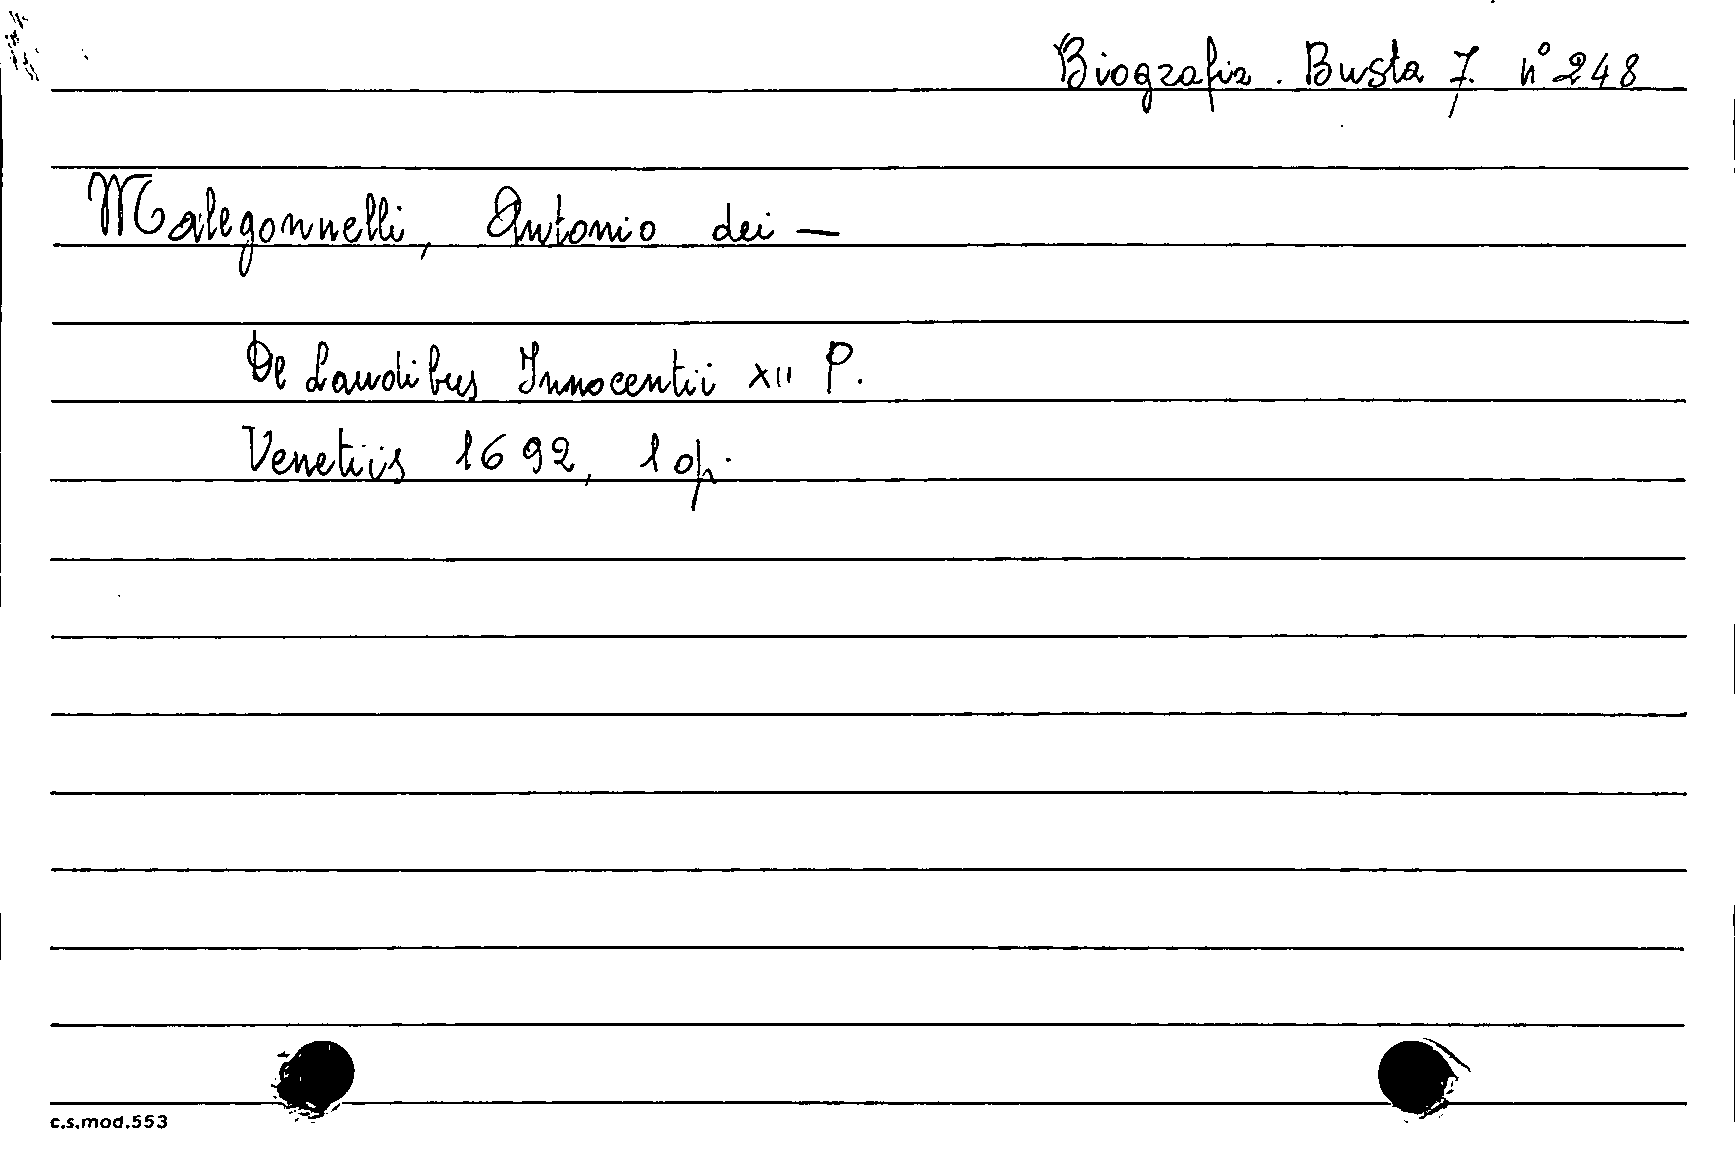 Biografia. Busta 7. n° 248
Malegonnelli, Antonio dei —
De Laudibus Innocentii XII P.
Venetiis 1692, 1 op.
c.s.mod.553